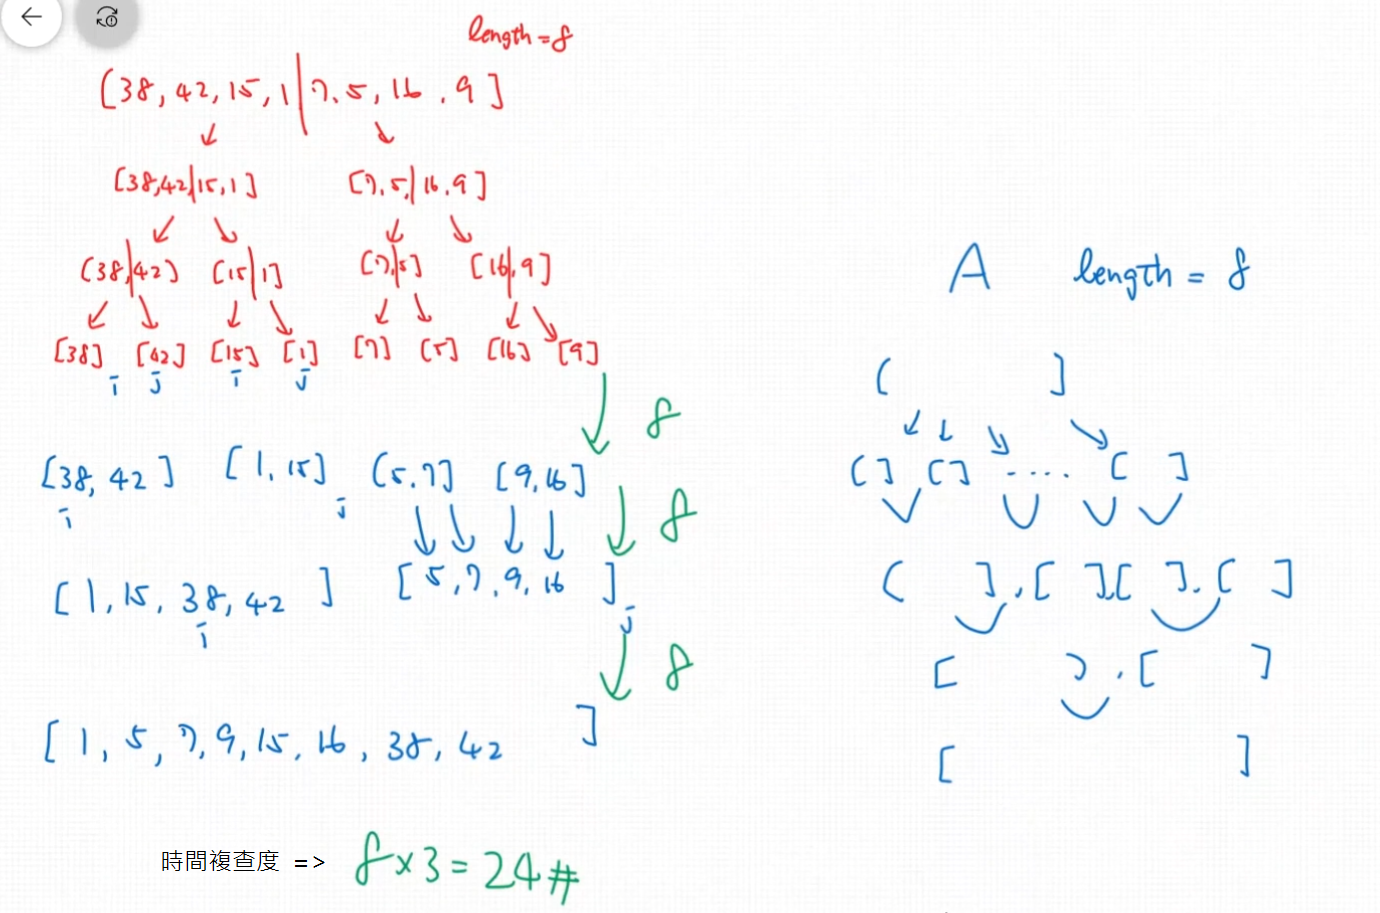 length = 8
[38, 42, 15, 1 | 7, 5, 16, 9]
[38, 42 | 15, 1] [7, 5, | 16, 9]
[38, | 42] [15 | 1] [7, | 5] [16, | 9]
[38] [42] [15] [1] [7] [5] [16] [9]
i j i j
8
[38, 42] [1, 15] [5, 7] [9, 16]
i j
8
[1, 15, 38, 42] [5, 7, 9, 16]
i j
8
[1, 5, 7, 9, 15, 16, 38, 42]
時間複查度 => 8 x 3 = 24 #
A length = 8
[ ]
[ ], [ ] ..... [ ]
[ ], [ ] [ ], [ ]
[ ], [ ]
[ ]